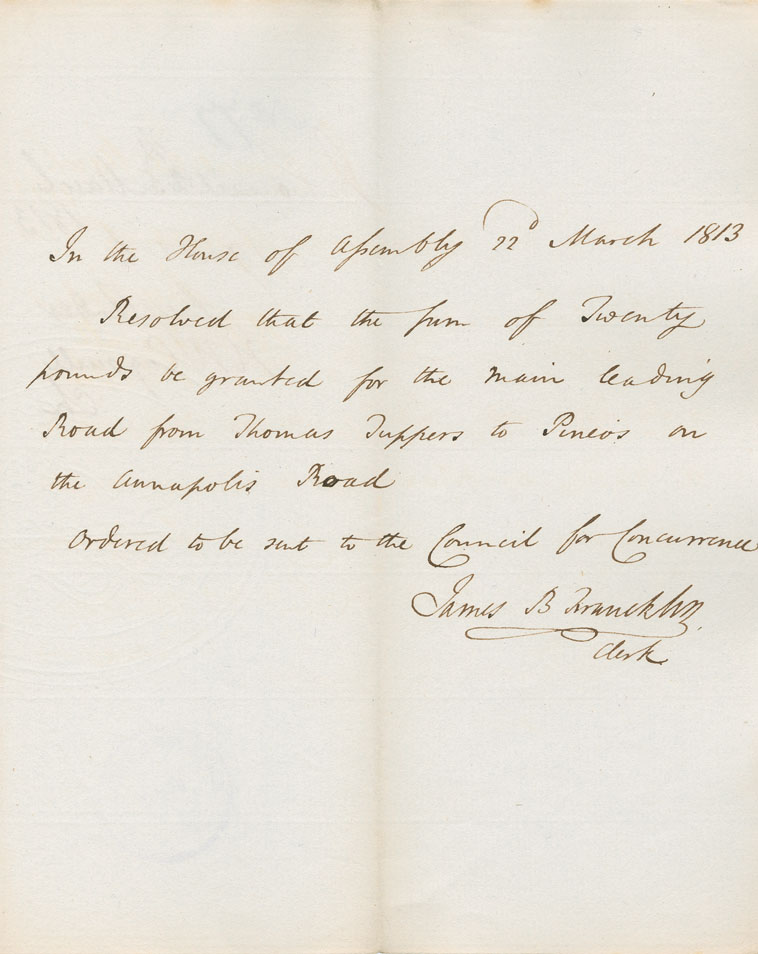 In the House of Assembly 22d March 1813
Resolved that the sum of Twenty
pounds be granted for the main leading
Road from Thomas Tuppers to Pineos on
the Annapolis Road
Ordered to be sent to the Council for Concurrence
James B Francklin
Clerk